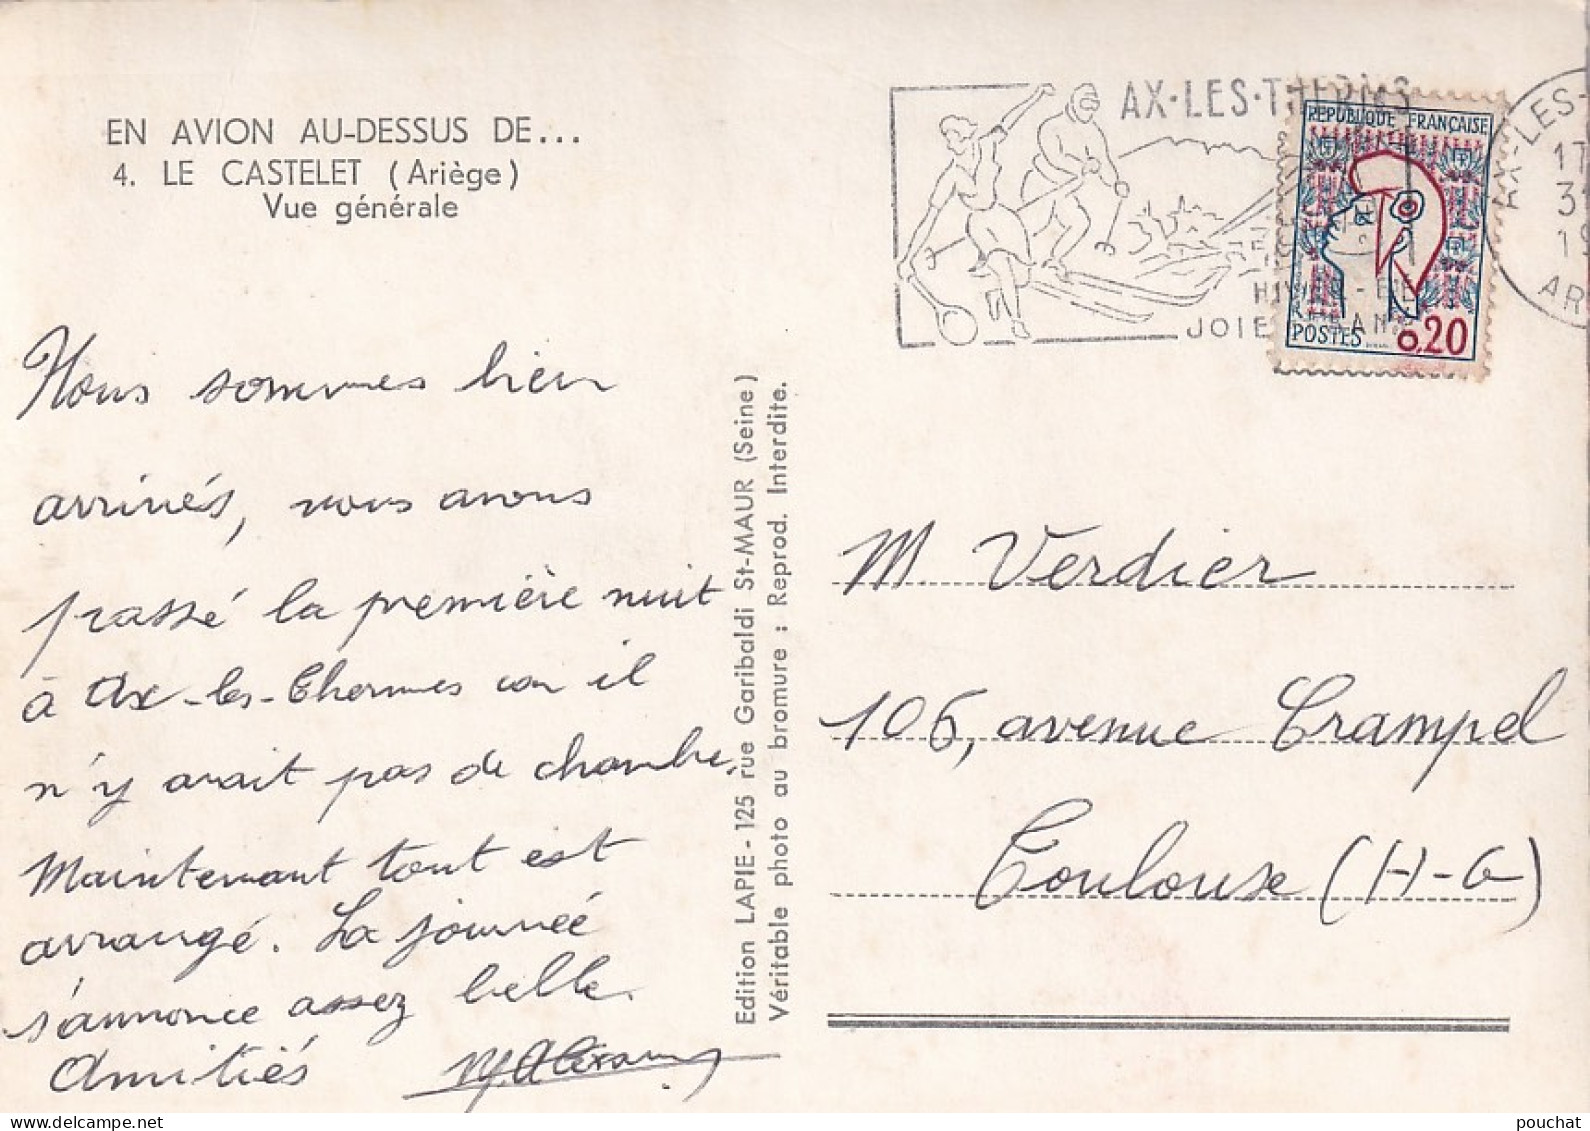 EN AVION AU-DESSUS DE...
4. LE CASTELET (Ariège)
Vue générale
Nous sommes bien
arrivés, nous avons
passé la première nuit
à Ax-les-Thermes car il
n'y avait pas de chambre.
Maintenant tout est
arrangé. La journée
s'annonce assez belle.
Amitiés
Edition LAPIE - 125 rue Garibaldi St-MAUR (Seine)
Véritable photo au bromure ; Reprod. Interdite.
AX·LES·THERMES
HIVER - ÉTÉ
JOIE SANTÉ
REPUBLIQUE FRANÇAISE
POSTES 0,20
AX-LES-
17
3
19
AR
M. Verdier
106, avenue Crampel
Toulouse (H-G)
www.delcampe.net
pouchat